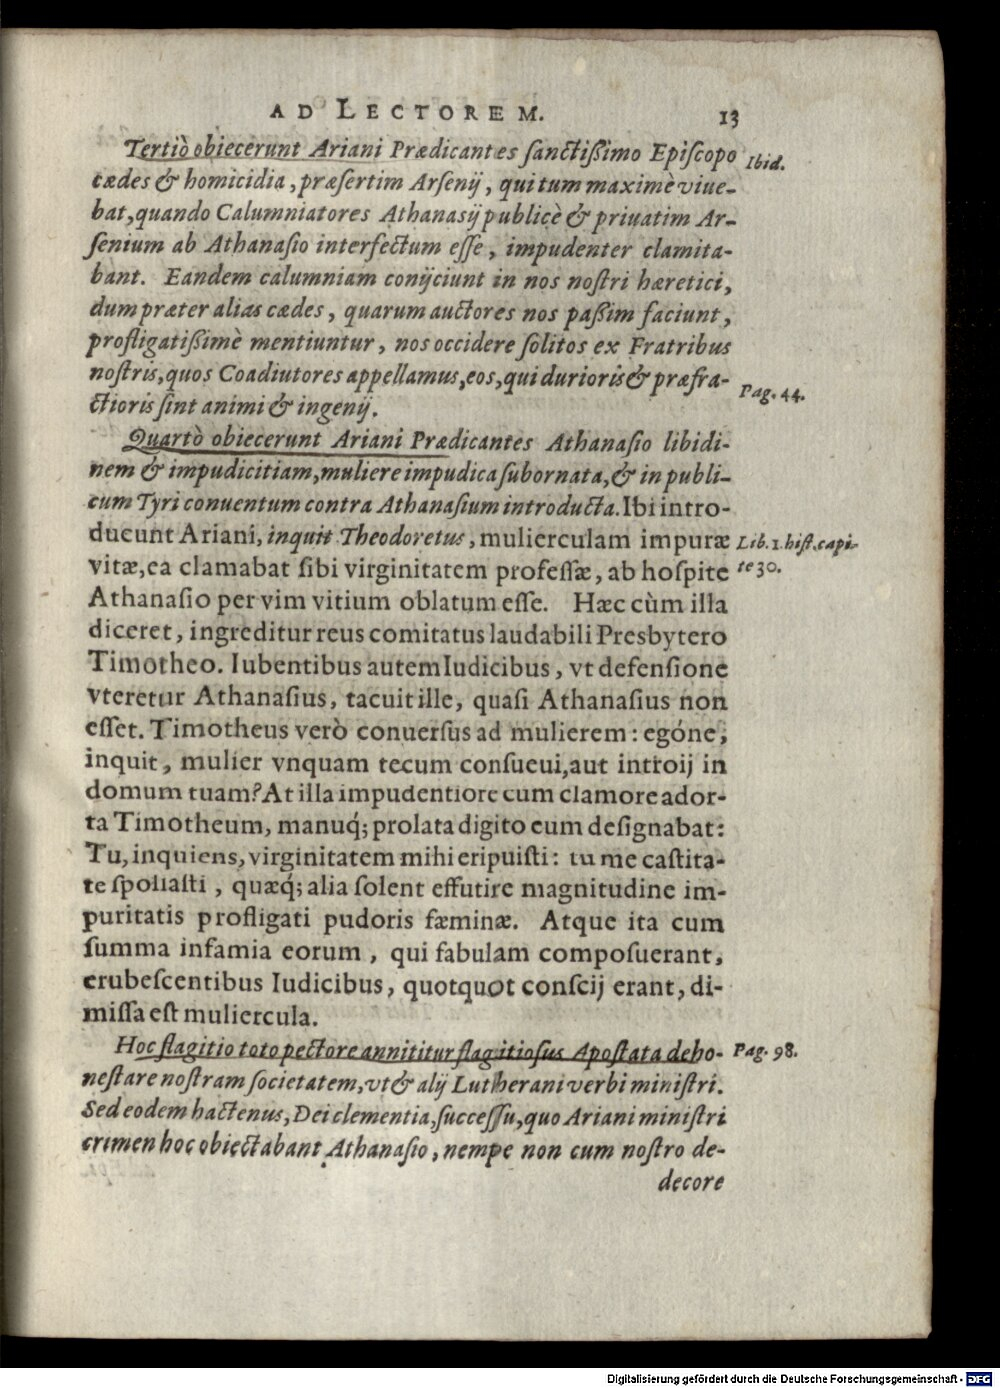 AD LECTOREM. 13
Tertiò obiecerunt Ariani Prædicantes ſanctißimo Epiſcopo Ibid.
cædes & homicidia, præſertim Arſenij, qui tum maximè viue-
bat, quando Calumniatores Athanasij publicè & priuatim Ar-
ſenium ab Athanaſio interfectum eſſe, impudenter clamita-
bant. Eandem calumniam conijciunt in nos noſtri hæretici,
dum præter alias cædes, quarum auctores nos paßim faciunt,
profligatißimè mentiuntur, nos occidere ſolitos ex Fratribus
noſtris, quos Coadiutores appellamus, eos, qui durioris & præfra- Pag. 44.
ctioris ſint animi & ingenij.
Quartò obiecerunt Ariani Prædicantes Athanaſio libidi-
nem & impudicitiam, muliere impudica ſubornata, & in publi-
cum Tyri conuentum contra Athanaſium introducta. Ibi intro-
ducunt Ariani, inquit Theodoretus, mulierculam impuræ Lib. 1. hiſt. capi-
vitæ, ea clamabat ſibi virginitatem profeſſæ, ab hoſpite te 30.
Athanaſio per vim vitium oblatum eſſe. Hæc cùm illa
diceret, ingreditur reus comitatus laudabili Presbytero
Timotheo. Iubentibus autem Iudicibus, vt defenſione
vteretur Athanaſius, tacuit ille, quaſi Athanaſius non
eſſet. Timotheus verò conuerſus ad mulierem: egóne,
inquit, mulier vnquam tecum conſueui, aut introij in
domum tuam? At illa impudentiore cum clamore ador-
ta Timotheum, manuq́; prolata digito eum deſignabat:
Tu, inquiens, virginitatem mihi eripuiſti: tu me caſtita-
te ſpoliaſti, quæq́; alia ſolent effutire magnitudine im-
puritatis profligati pudoris fæminæ. Atque ita cum
ſumma infamia eorum, qui fabulam compoſuerant,
erubeſcentibus Iudicibus, quotquot conſcij erant, di-
miſſa eſt muliercula.
Hoc flagitio toto pectore annititur flagitioſus Apoſtata deho- Pag. 98.
neſtare noſtram ſocietatem, vt & alij Lutherani verbi miniſtri.
Sed eodem hactenus, Dei clementia, ſucceſſu, quo Ariani miniſtri
crimen hoc obiectabant Athanaſio, nempe non cum noſtro de-
decore
Digitalisierung gefördert durch die Deutsche Forschungsgemeinschaft - DFG